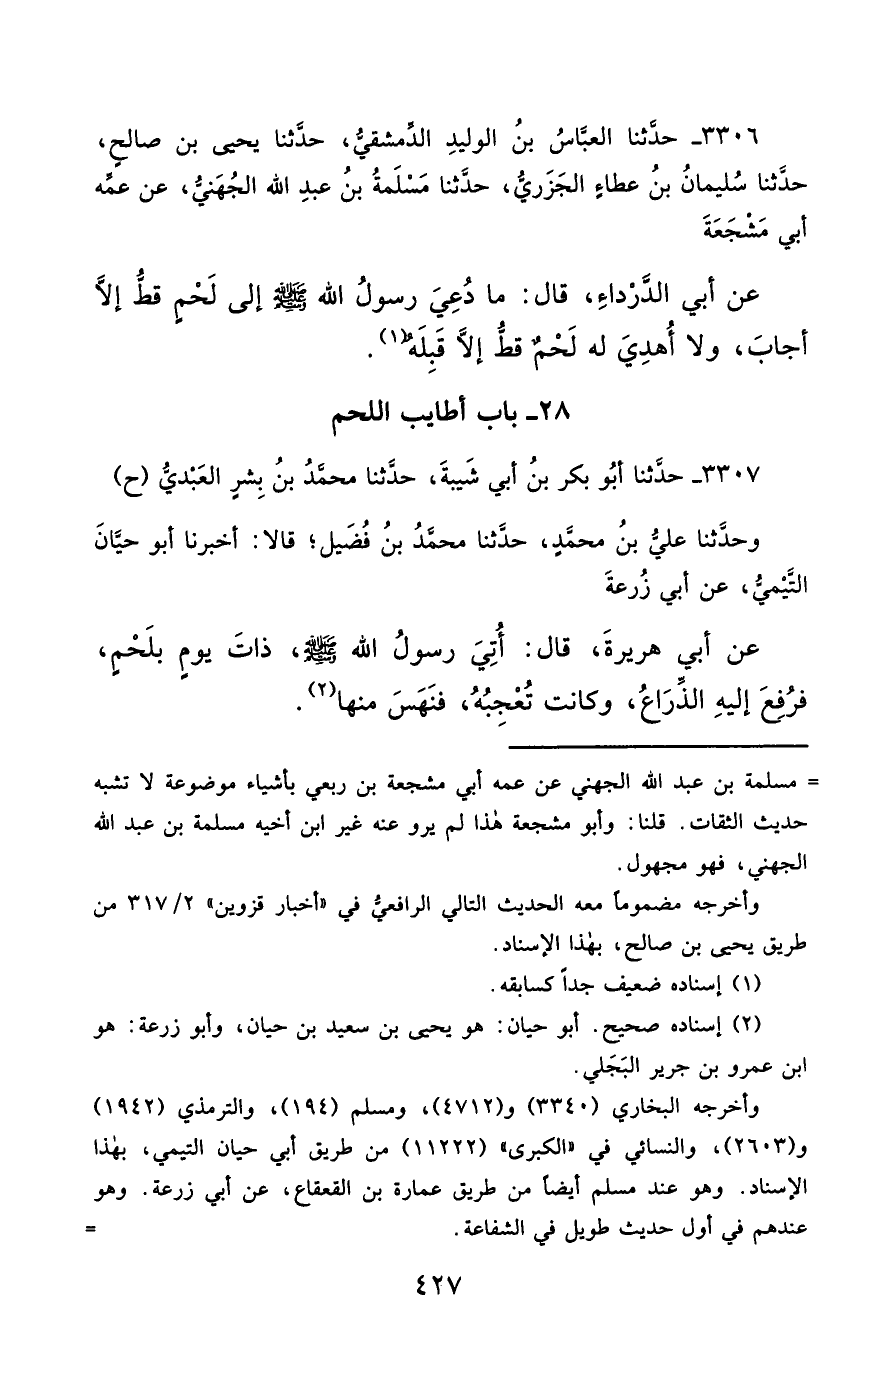 ٣٣٠٦ـ حدَّثنا العبَّاسُ بنُ الوليدِ الدِّمشقيُّ، حدَّثنا يحيى بن صالحٍ،
حدَّثنا سُليمانُ بنُ عطاءٍ الجَزَريُّ، حدَّثنا مَسْلَمةُ بنُ عبدِ الله الجُهَنيُّ، عن عمِّه
أبي مَشْجَعَةَ
عن أبي الدَّرْداءِ، قال: ما دُعِيَ رسولُ الله ﷺ إلى لَحْمٍ قطُّ إلاَّ
أجابَ، ولا أُهدِيَ له لَحْمٌ قطُّ إلاَّ قَبِلَهُ(١).
٢٨ـ باب أطايب اللحم
٣٣٠٧ـ حدَّثنا أبُو بكر بنُ أبي شَيبةَ، حدَّثنا محمَّدُ بنُ بِشرٍ العَبْديُّ (ح)
وحدَّثنا عليُّ بنُ محمَّدٍ، حدَّثنا محمَّدُ بنُ فُضَيل؛ قالا: أخبرنا أبو حيَّانَ
التَّيْميُّ، عن أبي زُرعةَ
عن أبي هريرةَ، قال: أُتِيَ رسولُ الله ﷺ، ذاتَ يومٍ بلَحْمٍ،
فرُفِعَ إليهِ الذِّرَاعُ، وكانت تُعْجِبُهُ، فنَهَسَ منها(٢).
= مسلمة بن عبد الله الجهني عن عمه أبي مشجعة بن ربعي بأشياء موضوعة لا تشبه
حديث الثقات. قلنا: وأبو مشجعة هٰذا لم يرو عنه غير ابن أخيه مسلمة بن عبد الله
الجهني، فهو مجهول.
وأخرجه مضموماً معه الحديث التالي الرافعيُّ في «أخبار قزوين» ٢/ ٣١٧ من
طريق يحيى بن صالح، بهٰذا الإسناد.
(١) إسناده ضعيف جداً كسابقه.
(٢) إسناده صحيح. أبو حيان: هو يحيى بن سعيد بن حيان، وأبو زرعة: هو
ابن عمرو بن جرير البَجَلي.
وأخرجه البخاري (٣٣٤٠) و(٤٧١٢)، ومسلم (١٩٤)، والترمذي (١٩٤٢)
و(٢٦٠٣)، والنسائي في «الكبرى» (١١٢٢٢) من طريق أبي حيان التيمي، بهٰذا
الإسناد. وهو عند مسلم أيضاً من طريق عمارة بن القعقاع، عن أبي زرعة. وهو
عندهم في أول حديث طويل في الشفاعة. =
٤٢٧